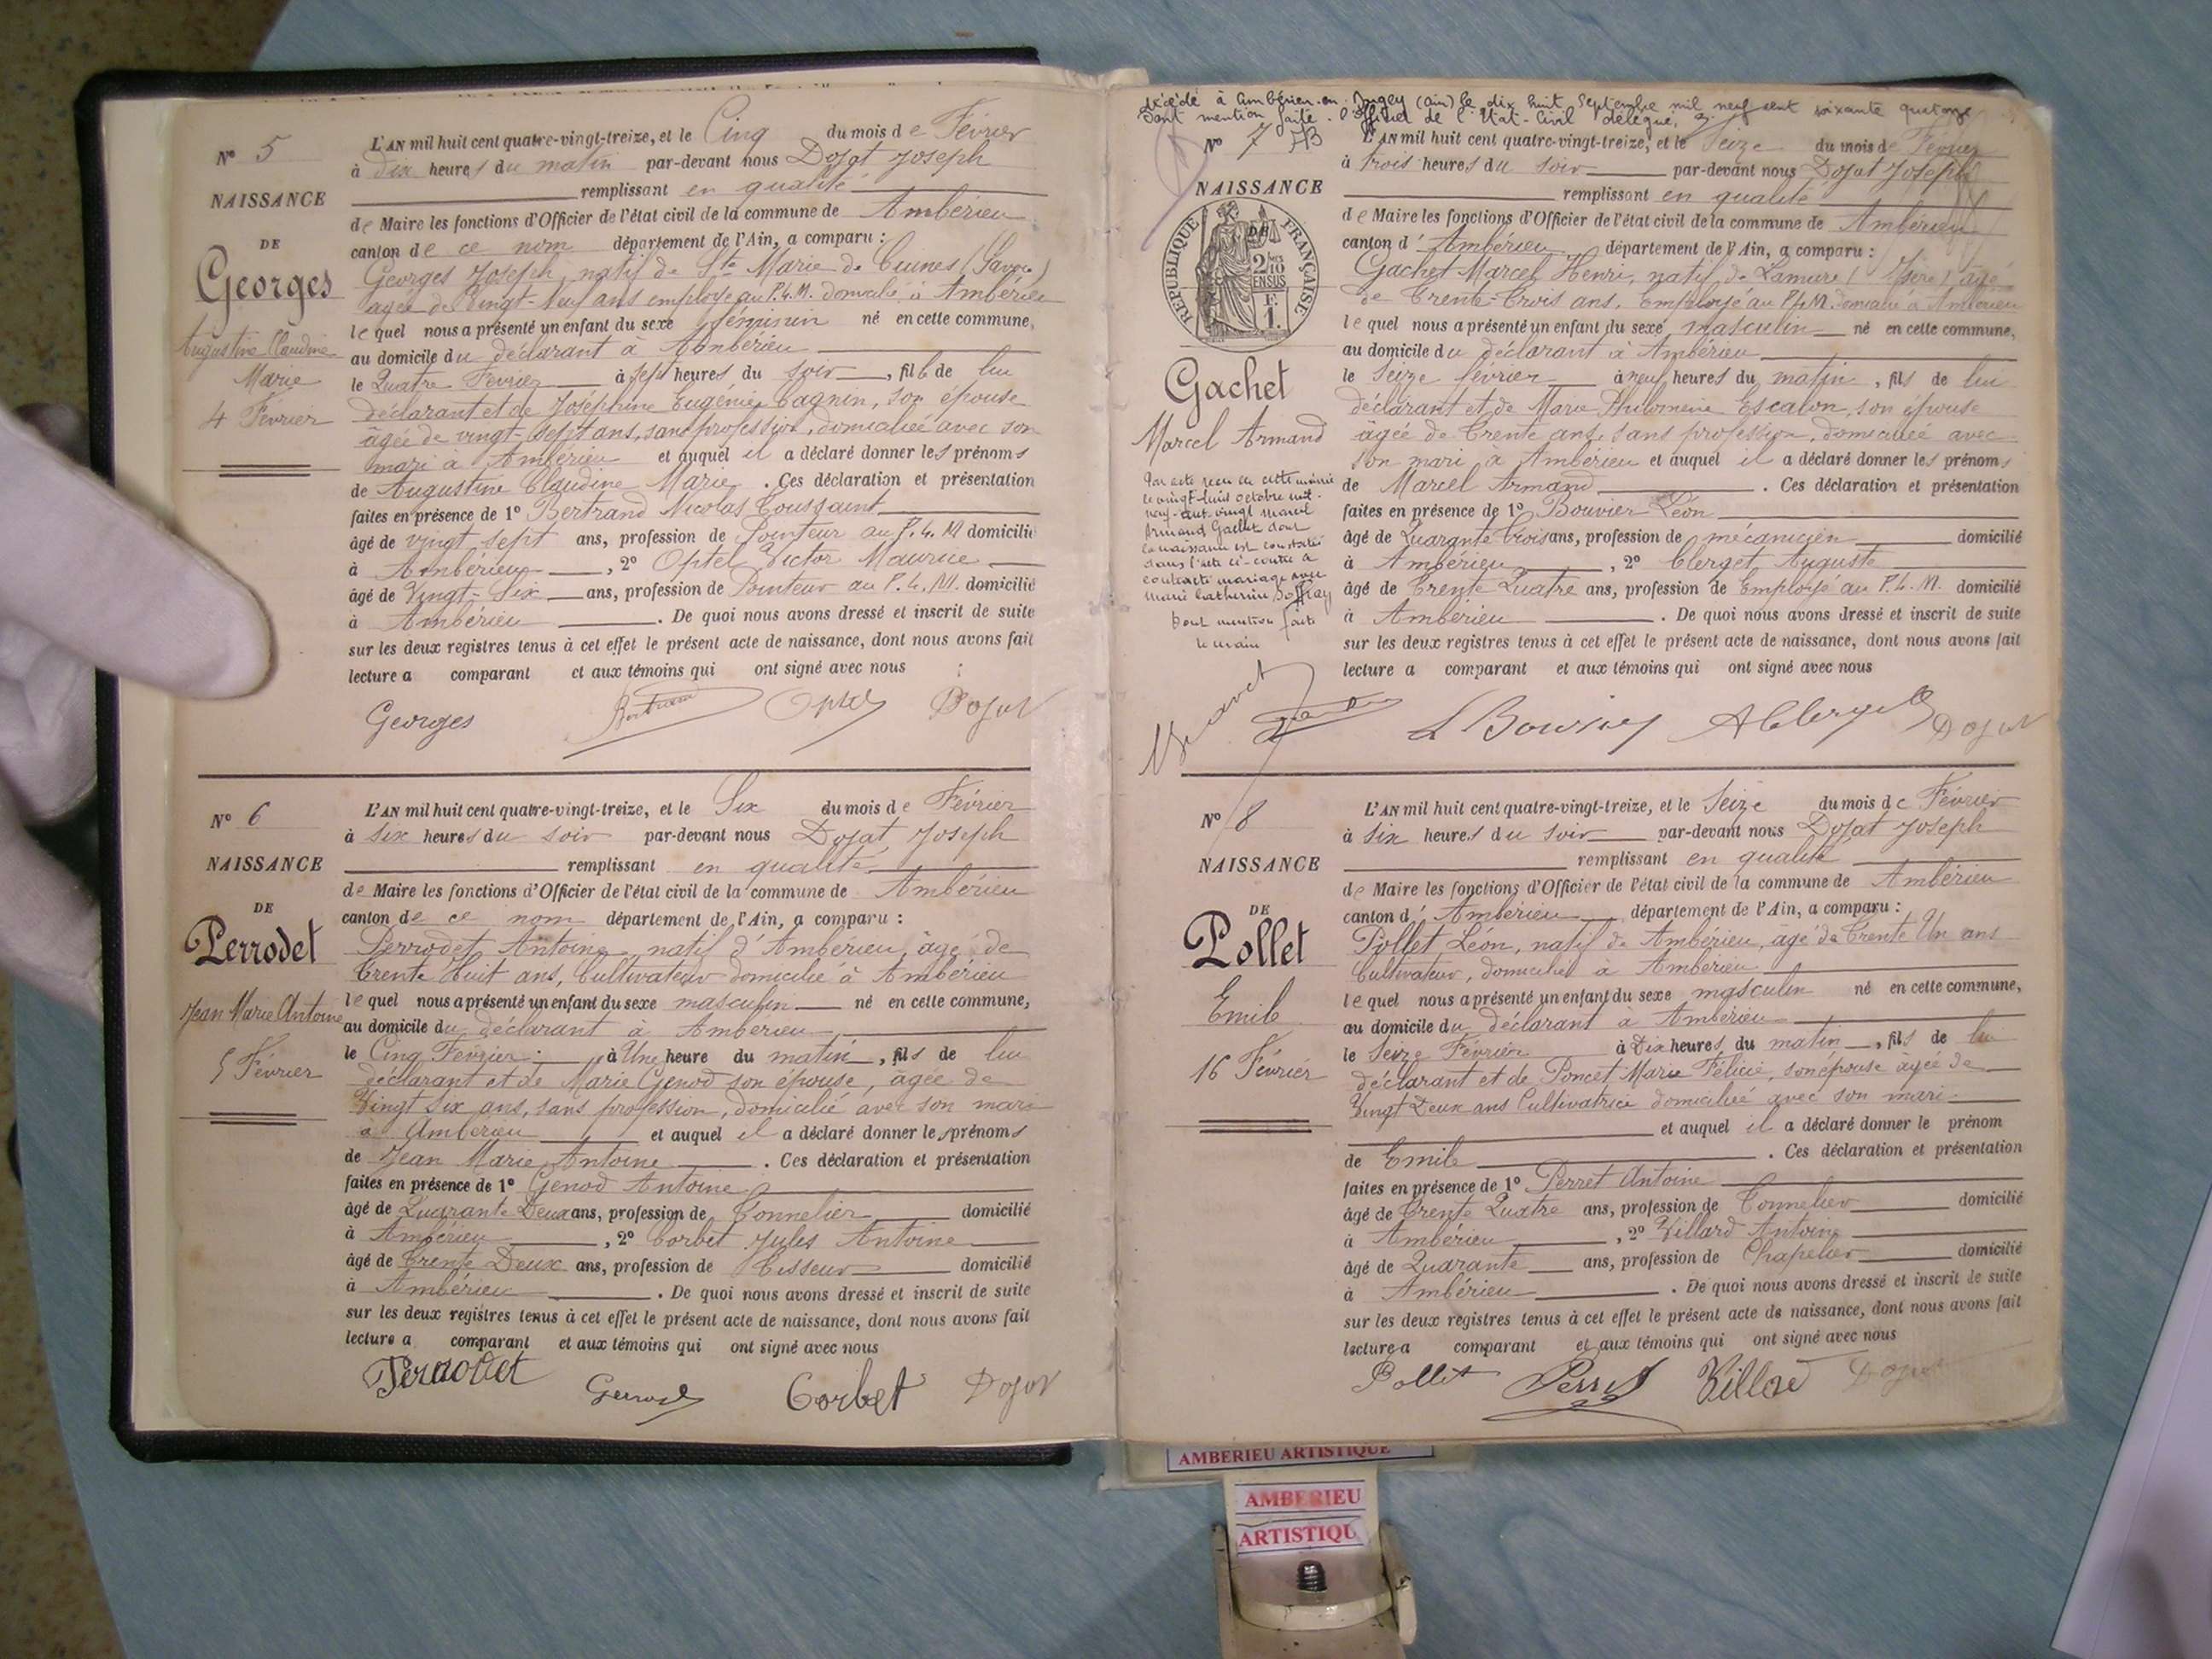 N° 5
NAISSANCE
DE
Georges
Augustine Claudine
Marie
4 Février
L'AN mil huit cent quatre-vingt-treize, et le Cinq du mois de Février
à dix heures du matin par-devant nous Dojat Joseph
remplissant en qualité
de Maire les fonctions d'Officier de l'état civil de la commune de Ambérieu
canton de ce nom département de l'Ain, a comparu :
Georges Joseph, natif de Ste Marie de Cuines (Savoie)
agée de Vingt-Neuf ans employé au P.L.M. domicilié à Ambérieu
lequel nous a présenté un enfant du sexe féminin né en cette commune,
au domicile du déclarant à Ambérieu
le Quatre Février à sept heures du soir, fille de lui
déclarant et de Joséphine Eugénie Cagnin, son épouse
âgée de vingt-sept ans, sans profession, domiciliée avec son
mari à Ambérieu et auquel il a déclaré donner les prénoms
de Augustine Claudine Marie. Ces déclaration et présentation
faites en présence de 1° Bertrand Nicolas Toussaint
âgé de vingt sept ans, profession de Pointeur au P.L.M domicilié
à Ambérieu, 2° Optel Victor Maurice
âgé de Vingt-Six ans, profession de Pointeur au P.L.M. domicilié
à Ambérieu. De quoi nous avons dressé et inscrit de suite
sur les deux registres tenus à cet effet le présent acte de naissance, dont nous avons fait
lecture a comparant et aux témoins qui ont signé avec nous
Georges Bertrand Optel Dojat
N° 6
NAISSANCE
DE
Perrodet
Jean Marie Antoine
5 Février
L'AN mil huit cent quatre-vingt-treize, et le Six du mois de Février
à six heures du soir par-devant nous Dojat Joseph
remplissant en qualité
de Maire les fonctions d'Officier de l'état civil de la commune de Ambérieu
canton de ce nom département de l'Ain, a comparu :
Perrodet Antoine natif d'Ambérieu, âgé de
Trente Huit ans, Cultivateur domicilié à Ambérieu
lequel nous a présenté un enfant du sexe masculin né en cette commune,
au domicile du déclarant à Ambérieu
le Cinq Février à Une heure du matin, fils de lui
déclarant et de Marie Genod son épouse, âgée de
Vingt Six ans, sans profession, domicilié avec son mari
à Ambérieu et auquel il a déclaré donner les prénoms
de Jean Marie Antoine. Ces déclaration et présentation
faites en présence de 1° Genod Antoine
âgé de Quarante Deux ans, profession de Tonnelier domicilié
à Ambérieu, 2° Corbet Jules Antoine
âgé de Trente Deux ans, profession de Tisseur domicilié
à Ambérieu. De quoi nous avons dressé et inscrit de suite
sur les deux registres tenus à cet effet le présent acte de naissance, dont nous avons fait
lecture a comparant et aux témoins qui ont signé avec nous
Perrodet Genod Corbet Dojat
Décédé à Ambérieu-en-Bugey (Ain) le dix huit Septembre mil neuf cent soixante quatorze
Dont mention faite. l'Officier de l'Etat-Civil délégué,
N° 7
NAISSANCE
DE
RÉPUBLIQUE FRANÇAISE
2/10 EN SUS
F. 1.
Gachet
Marcel Armand
Par acte reçu en cette mairie
le vingt-huit octobre mil-
neuf-cent-vingt Marcel
Armand Gachet dont
la naissance est constatée
dans l'acte ci-contre a
contracté mariage avec
Marie Catherine
Dont mention faite
le maire
L'AN mil huit cent quatre-vingt-treize, et le Seize du mois de Février
à trois heures du soir par-devant nous Dojat Joseph
remplissant en qualité
de Maire les fonctions d'Officier de l'état civil de la commune de Ambérieu
canton d'Ambérieu département de l'Ain, a comparu :
Gachet Marcel Henri, natif de Lamure (Isère) âgé
de Trente-Trois ans, Employé au P.L.M. domicilié à Ambérieu
lequel nous a présenté un enfant du sexe masculin né en cette commune,
au domicile du déclarant à Ambérieu
le Seize février à neuf heures du matin, fils de lui
déclarant et de Marie Philomène Escalon, son épouse
âgée de Trente ans, sans profession, domiciliée avec
son mari à Ambérieu et auquel il a déclaré donner les prénoms
de Marcel Armand. Ces déclaration et présentation
faites en présence de 1° Bouvier Léon
âgé de Quarante Trois ans, profession de mécanicien domicilié
à Ambérieu, 2° Clerget Auguste
âgé de Trente Quatre ans, profession de Employé au P.L.M. domicilié
à Ambérieu. De quoi nous avons dressé et inscrit de suite
sur les deux registres tenus à cet effet le présent acte de naissance, dont nous avons fait
lecture a comparant et aux témoins qui ont signé avec nous
L Bouvier A Clerget Dojat
N° 8
NAISSANCE
DE
Pollet
Emile
16 Février
L'AN mil huit cent quatre-vingt-treize, et le Seize du mois de Février
à six heures du soir par-devant nous Dojat Joseph
remplissant en qualité
de Maire les fonctions d'Officier de l'état civil de la commune de Ambérieu
canton d'Ambérieu département de l'Ain, a comparu :
Pollet Léon, natif de Ambérieu, âgé de Trente Un ans
Cultivateur, domicilié à Ambérieu
lequel nous a présenté un enfant du sexe masculin né en cette commune,
au domicile du déclarant à Ambérieu
le Seize Février à Dix heures du matin, fils de lui
déclarant et de Poncet Marie Félicie, son épouse âgée de
Vingt Deux ans Cultivatrice domiciliée avec son mari
et auquel il a déclaré donner le prénom
de Emile. Ces déclaration et présentation
faites en présence de 1° Perret Antoine
âgé de Trente Quatre ans, profession de Tonnelier domicilié
à Ambérieu, 2° Villard Antoine
âgé de Quarante ans, profession de Chapelier domicilié
à Ambérieu. De quoi nous avons dressé et inscrit de suite
sur les deux registres tenus à cet effet le présent acte de naissance, dont nous avons fait
lecture a comparant et aux témoins qui ont signé avec nous
Pollet Perret Villard Dojat
AMBERIEU ARTISTIQUE
AMBERIEU
ARTISTIQU